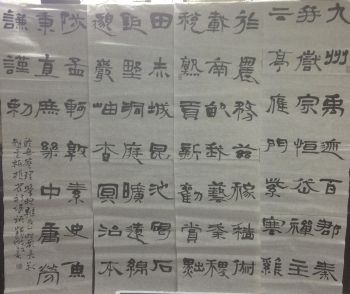 九州禹迹百郡秦
并嶽宗恒岱禪主
云亭雁門紫塞雞
於農務茲稼穡俶
載南畝我藝黍稷
稅熟貢新勸賞黜
田赤城昆池碣石
鉅野洞庭曠遠綿
邈巖岫杳冥治本
陟孟軻敦素史魚
秉直庶幾中庸勞
謙謹勅